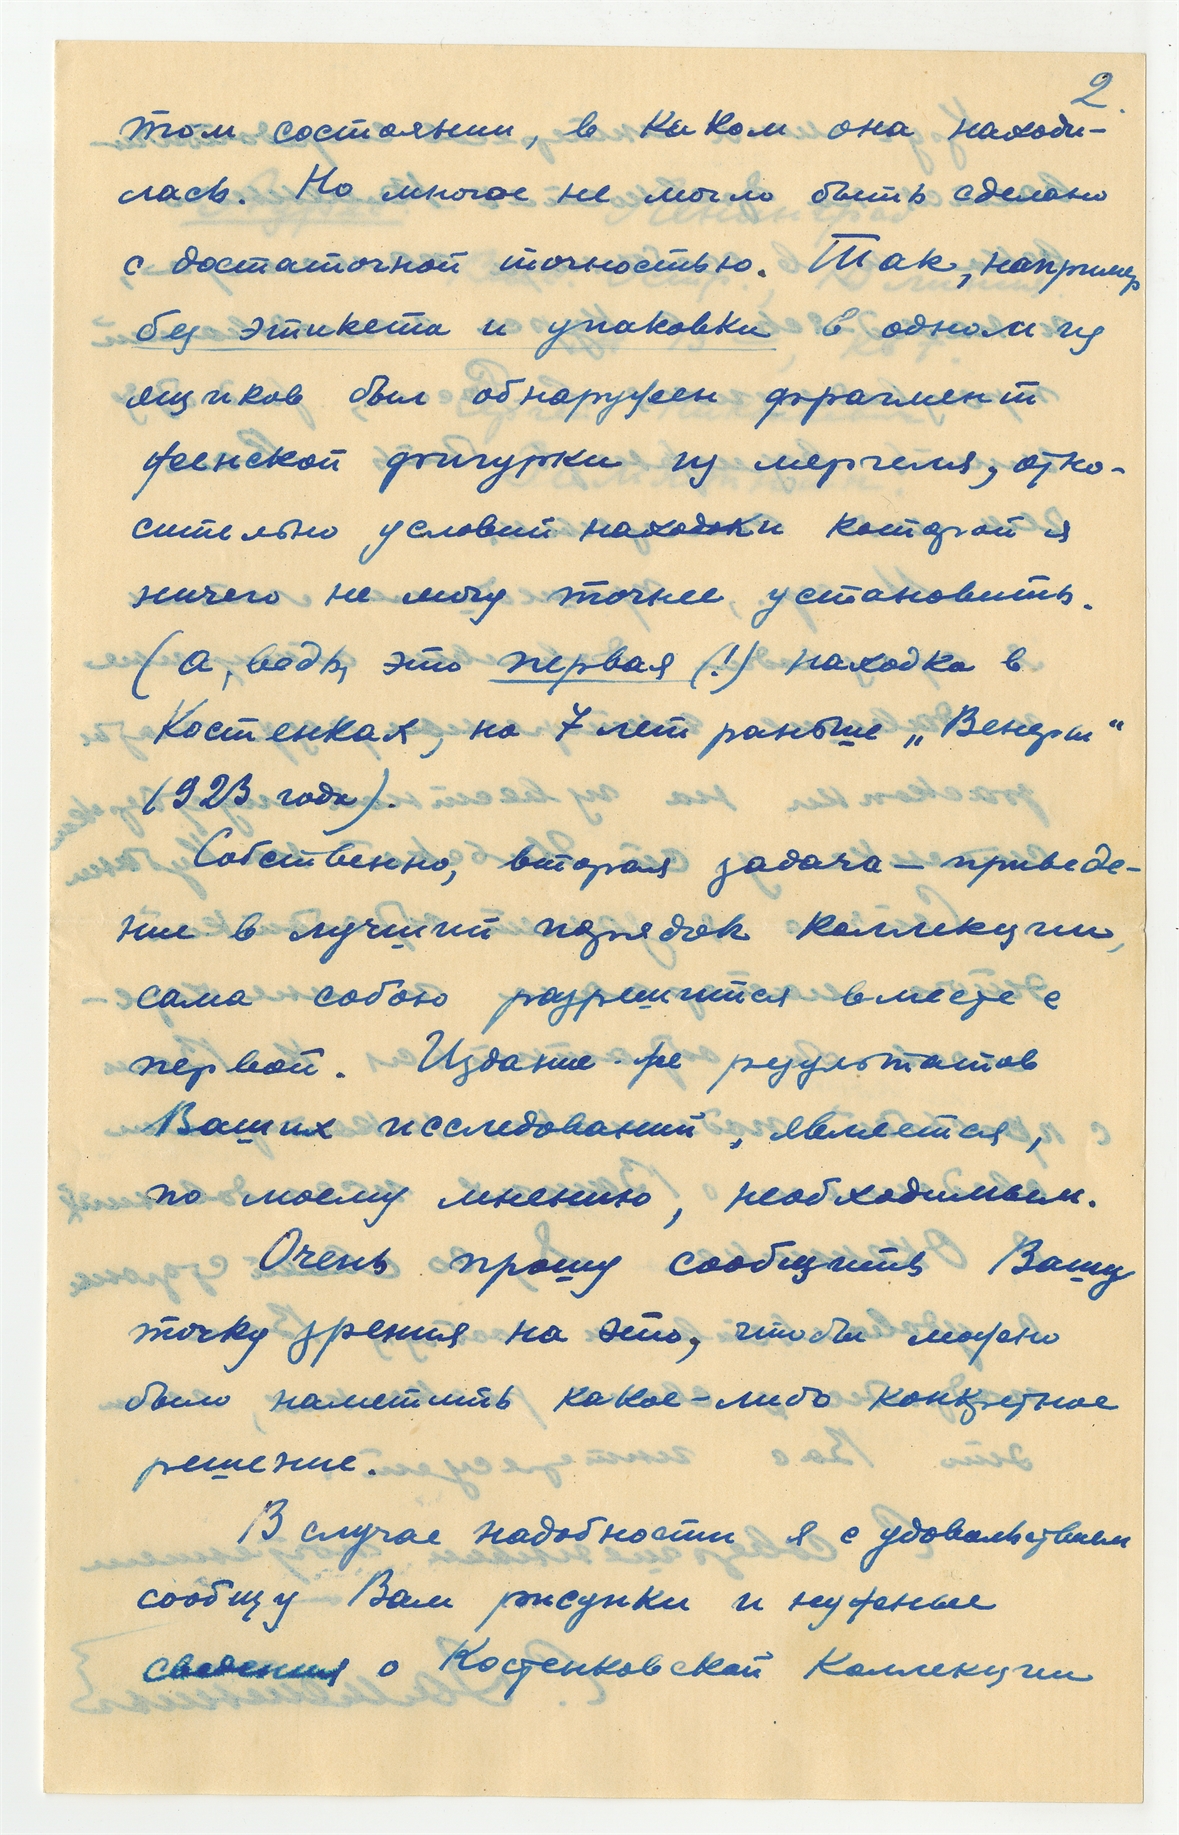 2.
том состоянии, в каком она находи-
лась. Но многое не могло быть сделано
с достаточной точностью. Так, например
без этикета и упаковки в одном из
ящиков был обнаружен фрагмент
женской фигурки из мергеля, отно-
сительно условий находки которой я
ничего не могу точнее установить.
(а, ведь, это первая (!) находка в
Костенках, на 7 лет раньше „Венеры“
1923 года).
Собственно, вторая задача — приведе-
ние в лучший порядок коллекции,
сама собою разрешится вместе с
первой. Издание же результатов
Ваших исследований, является,
по моему мнению, необходимым.
Очень прошу сообщить Вашу
точку зрения на это, чтобы можно
было наметить какое-либо конкретное
решение.
В случае надобности я с удовольствием
сообщу Вам рисунки и нужные
сведения о Костенковской коллекции